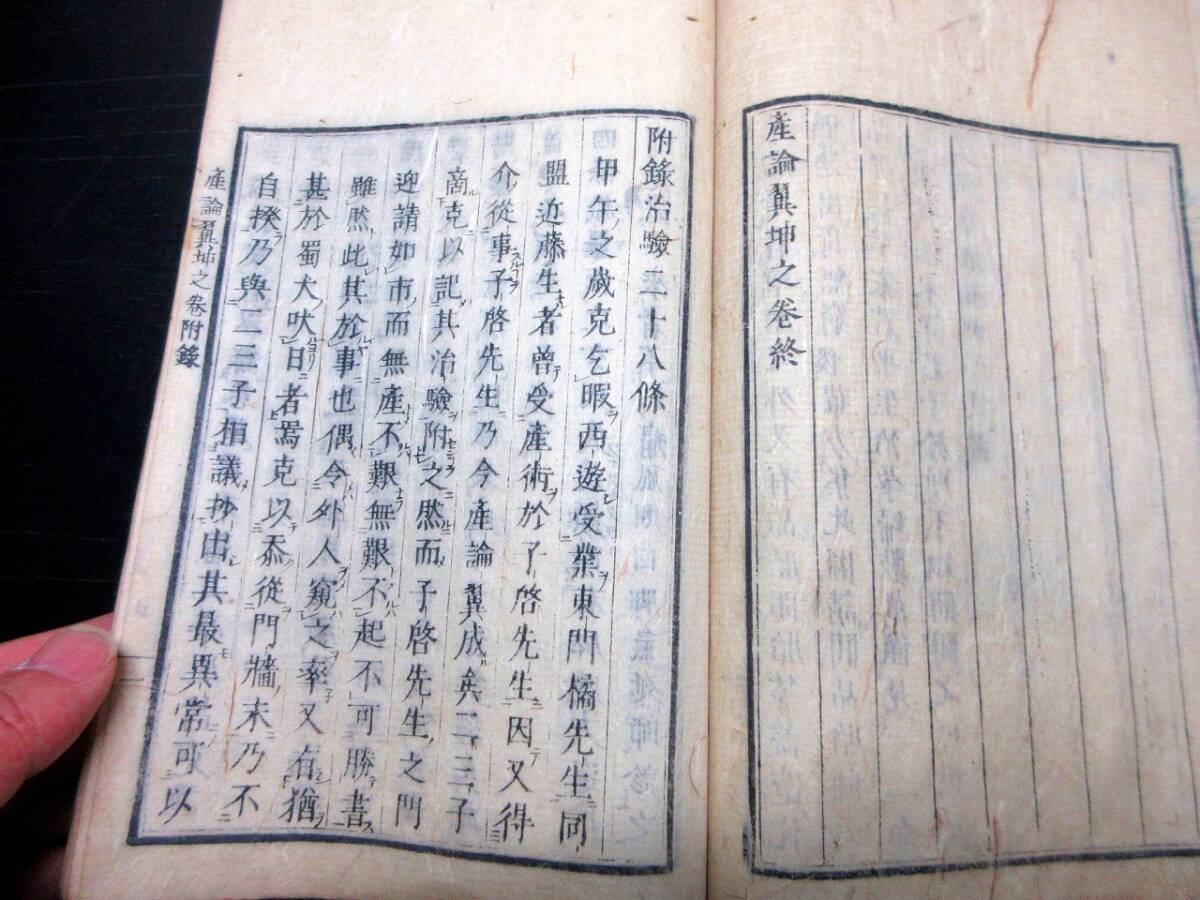 產論翼坤之卷終
附錄治驗二十八條
甲午之歲克乞暇西遊受業東門橘先生同
盟近藤生者曾受產術於子啓先生因又得
介從事子啓先生乃今產論翼成矣二三子
商克以記其治驗附之然而子啓先生之門
迎請如市而無產不艱無艱不起不可勝書
雖然此其於事也偶令外人窺之率又有猶
甚於蜀犬吠日者焉克以忝從門牆末乃不
自揆乃與二三子相議抄出其最異常可以
產論翼坤之卷附錄